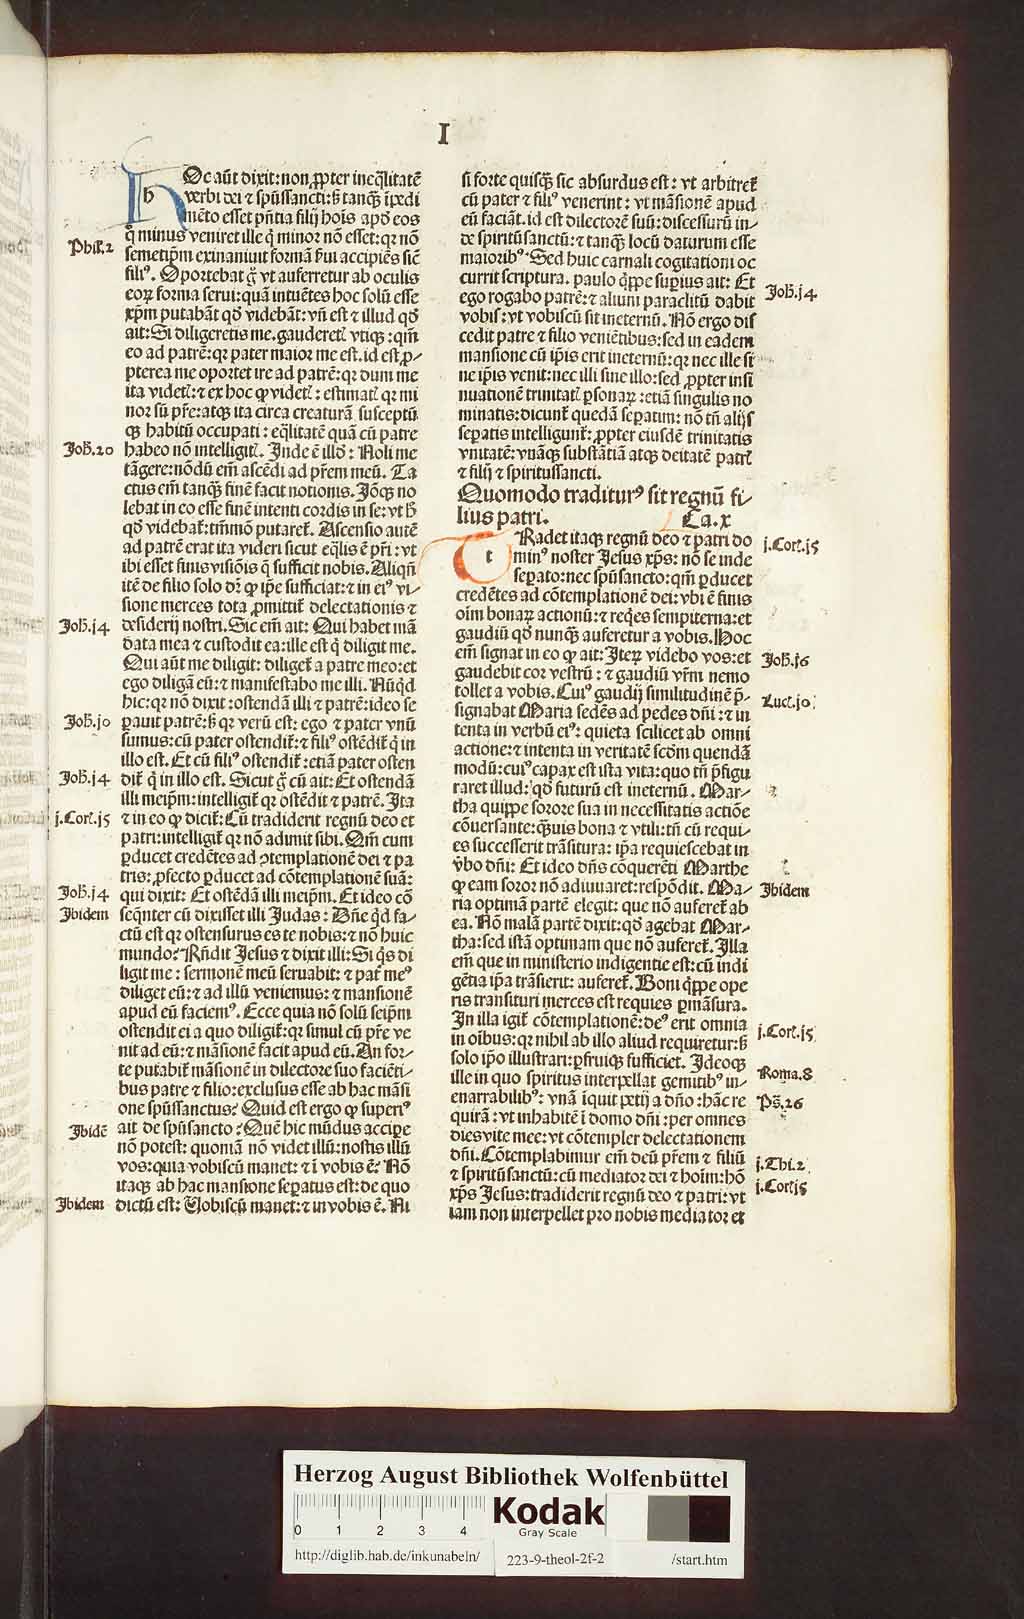 I
HOc aūt dixit: non ꝓpter ineq̄litatē
verbi dei ⁊ spūssancti: ß tanqꝫ ī̄pedi
mēto esset pn̄tia filij hoīs apd eos
q̄ minus veniret ille q̄ minor nō esset: qꝛ nō
semetip̄m exinaniuit formā ẜui accipiēs sic̄
filiꝰ. Oportebat ḡ vt auferretur ab oculis
eoꝝ forma serui: quā intuētes hoc solū esse
xp̄m putabāt qd̄ videbāt: vn̄ est ⁊ illud qd̄
ait: Si diligeretis me. gauderetꝭ vtiqꝫ: qm̄
eo ad patrē: qꝛ pater maior me est. id est ꝓ-
pterea me oportet ire ad patrē: qꝛ dum me
ita videtꝭ: ⁊ ex hoc ꝙ videtꝭ: estimatꝭ qꝛ mi
nor sū pr̄e: atqꝫ ita circa creaturā susceptū
qꝫ habitū occupati: eq̄litatē quā cū patre
habeo nō intelligitꝭ. Inde ē illd̄: Noli me
tāgere: nōdū em̄ ascēdi ad pr̄em meū. Ta
ctus em̄ tanqꝫ finē facit notionis. Iōqꝫ no
lebat in eo esse finē intenti cordis in se: vt h̄
qd̄ videbat̄: tm̄mō putaret̄. Ascensio autē
ad patrē erat ita videri sicut eq̄lis ē pr̄i: vt
ibi esset finis visiōis q̄ sufficit nobis. Aliqn̄
itē de filio solo dr̄ ꝙ ip̄e sufficiat: ⁊ in eiꝰ vi-
sione merces tota ꝓmittit̄ delectationis ⁊
desiderij nostri. Sic em̄ ait: Qui habet mā
data mea ⁊ custodit ea: ille est q̄ diligit me.
Qui aūt me diligit: diliget̄ a patre meo: et
ego diligā eū: ⁊ manifestabo me illi. Nūqd̄
hic: qꝛ nō dixit: ostendā illi ⁊ patrē: ideo se
ꝑauit patrē: ß qꝛ verū est: ego ⁊ pater vnū
sumus: cū pater ostendit̄: ⁊ filiꝰ ostēdit̄ q̄ in
illo est. Et cū filiꝰ ostendit̄: etiā pater osten
dit̄ q̄ in illo est. Sicut ḡ cū ait: Et ostendā
illi meip̄m: intelligit̄ qꝛ ostēdit ⁊ patrē. Ita
⁊ in eo ꝙ dicit̄: Cū tradiderit regnū deo et
patri: intelligit̄ qꝛ nō adimit sibi. Qm̄ cum
ꝑducet credētes ad ꝯtemplationē dei ⁊ pa
tris: ꝓfecto ꝑducet ad cōtemplationē suā:
qui dixit: Et ostēdā illi meip̄m. Et ideo cō
seqn̄ter cū dixisset illi Judas: Dn̄e qd̄ fa-
ctū est qꝛ ostensurus es te nobis: ⁊ nō huic
mundo? Rn̄dit Jesus ⁊ dixit illi: Si q̄s di
ligit me: sermonē meū seruabit: ⁊ pat̄ meꝰ
diliget eū: ⁊ ad illū veniemus: ⁊ mansionē
apud eū faciemꝰ. Ecce quia nō solū seip̄m
ostendit ei a quo diligit̄: qꝛ simul cū pr̄e ve
nit ad eū: ⁊ māsionē facit apud eū. An for-
te putabit̄ māsionē in dilectore suo faciēti-
bus patre ⁊ filio: exclusus esse ab hac māsi
one spūssanctus? Quid est ergo ꝙ superiꝰ
ait de spūsancto? Quē hic mūdus accipe
nō potest: quoniā nō videt illū: nostis illū
vos: quia vobiscū manet: ⁊ ī vobis ē? Nō
itaqꝫ ab hac mansione seꝑatus est: de quo
dictū est: Vobiscū manet: ⁊ in vobis ē. Ni
Phil̄.2
Joh̄.20
Joh̄.14
Joh̄.10
Joh̄.14
j.Cort̄.15
Joh̄.14
Ibidem
Ibidē
Ibidem
si forte quisqꝫ sic absurdus est: vt arbitret̄
cū pater ⁊ filiꝰ venerint: vt māsionē apud
eū faciāt. id est dilectorē suū: discessurū in-
de spiritūsanctū: ⁊ tanqꝫ locū daturum esse
maioribꝰ. Sed huic carnali cogitationi oc
currit scriptura. paulo q̄ppe suꝑius ait: Et
ego rogabo patrē: ⁊ alium paraclitū dabit
vobis: vt vobiscū sit ineternū. Nō ergo dis
cedit patre ⁊ filio veniētibus: sed in eadem
mansione cū ip̄is erit ineternū: qꝛ nec ille si
ne ip̄is venit: nec illi sine illo: sed ꝓpter insi
nuationē trinitatꝭ ꝑsonaꝝ: etiā singulis no
minatis: dicunt̄ quedā seꝑatim: nō tn̄ alijs
seꝑatis intelligunt̄: ꝓpter eiusdē trinitatis
vnitatē: vnāqꝫ substātiā atqꝫ deitatē patrꝭ
⁊ filij ⁊ spiritussancti.
Quomodo traditurꝰ sit regnū fi-
lius patri. Ca.x
TRadet itaqꝫ regnū deo ⁊ patri do
minꝰ noster Jesus xp̄s: nō se inde
seꝑato: nec spūsancto: qm̄ ꝑducet
credētes ad cōtemplationē dei: vbi ē finis
oīm bonaꝝ actionū: ⁊ req̄es sempiterna: et
gaudiū qd̄ nunqꝫ auferetur a vobis. Hoc
em̄ signat in eo ꝙ ait: Iteꝝ videbo vos: et
gaudebit cor vestrū: ⁊ gaudiū vr̄m nemo
tollet a vobis. Cuiꝰ gaudij similitudinē p̄-
signabat Maria sedēs ad pedes dn̄i: ⁊ in
tenta in verbū eiꝰ: quieta scilicet ab omni
actione: ⁊ intenta in veritatē scd̄m quendā
modū: cuiꝰ capax est ista vita: quo tn̄ p̄figu
raret illud: qd̄ futurū est ineternū. Mar-
tha quippe sorore sua in necessitatis actiōe
cōuersante: q̄uis bona ⁊ vtili: tn̄ cū requi-
es successerit trāsitura: ip̄a requiescebat in
v̄bo dn̄i: Et ideo dn̄s cōquerēti Marthe
ꝙ eam soror nō adiuuaret: respōdit. Ma-
ria optimā partē elegit: que nō auferet̄ ab
ea. Nō malā partē dixit: qd̄ agebat Mar-
tha: sed istā optimam que nō auferet̄. Illa
em̄ que in ministerio indigentie est: cū indi
gētia ip̄a trāsierit: auferet̄. Boni q̄ppe ope
ris transituri merces est requies ꝑmāsura.
In illa igit̄ cōtemplationē: deꝰ erit omnia
in oībus: qꝛ nihil ab illo aliud requiretur: ß
solo ip̄o illustrari: ꝑfruiqꝫ sufficiet. Ideoqꝫ
ille in quo spiritus interpellat gemitibꝰ in-
enarrabilibꝰ: vnā īquit petij a dn̄o: hāc re
quirā: vt inhabitē ī domo dn̄i: per omnes
dies vite mee: vt cōtempler delectationem
dn̄i. Cōtemplabimur em̄ deū pr̄em ⁊ filiū
⁊ spiritūsanctū: cū mediator dei ⁊ hoīm: hō
xp̄s Jesus: tradiderit regnū deo ⁊ patri: vt
iam non interpellet pro nobis mediator et
Joh̄.14
j.Cort̄.15
Joh̄.16
Luc̄.10
Ibidem
j.Cort̄.15
Roma.8
Ps̄.26
j.Thi.2
j.Cort̄15
Herzog August Bibliothek Wolfenbüttel
0 1 2 3 4
Kodak
Gray Scale
http://diglib.hab.de/inkunabeln/ 223-9-theol-2f-2 /start.htm